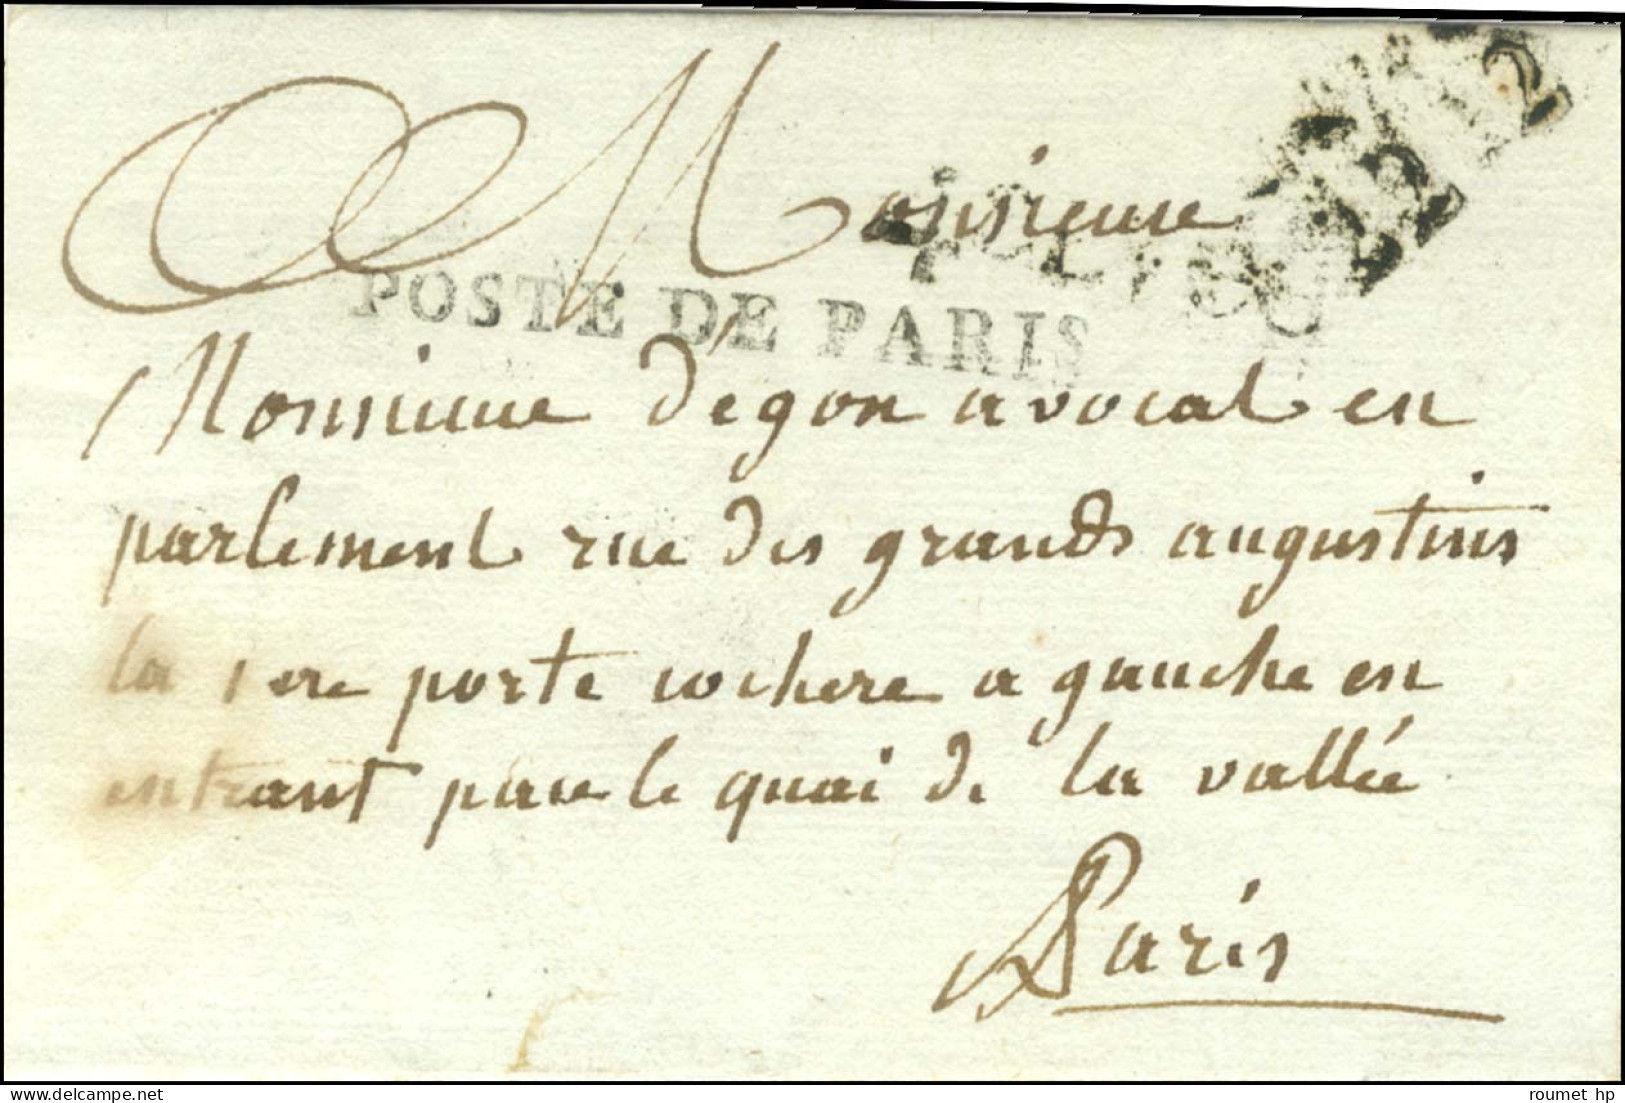 Monsieur
POSTE DE PARIS
Monsieur dégon avocat en
parlement rue des grands augustins
la 1ere porte cochere a gauche en
entrant par le quai de la vallée
Paris
roumet hp